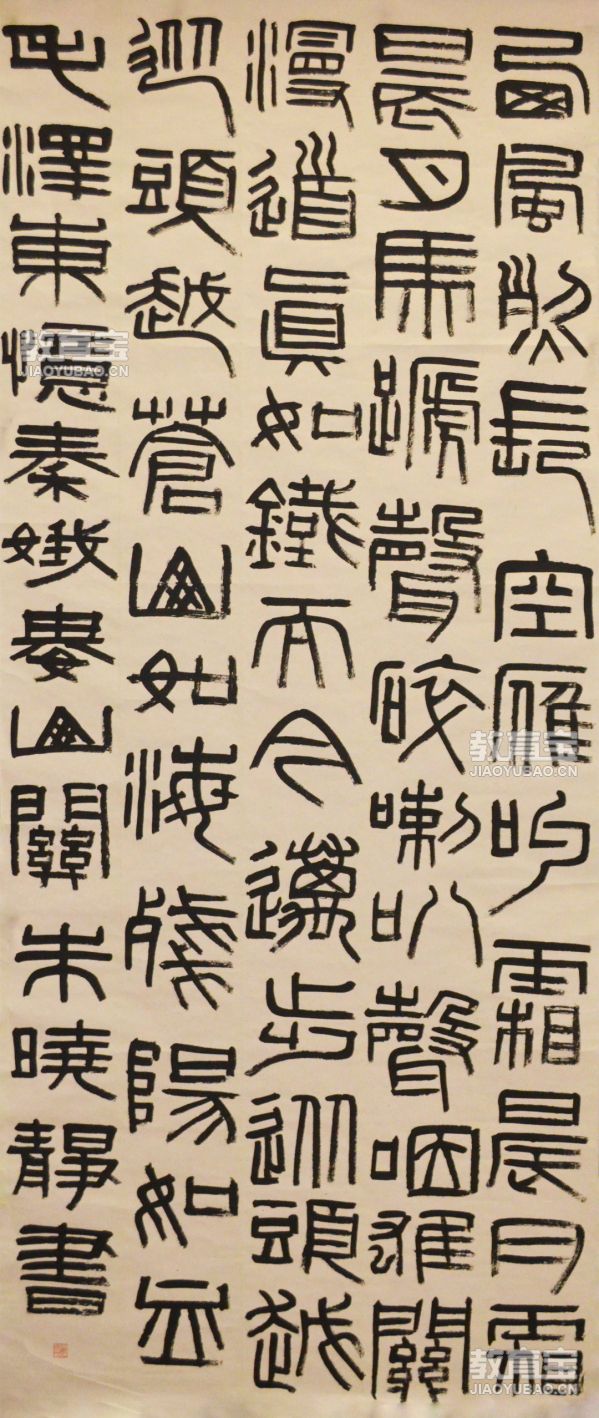 西風烈長空雁叫霜晨月霜
晨月馬蹄聲碎喇叭聲咽雄關
漫道真如鐵而今邁步從頭越
從頭越蒼山如海殘陽如血
毛澤東憶秦娥婁山關朱曉靜書
教育宝
JIAOYUBAO.CN
教育宝
JIAOYUBAO.CN
教育宝
JIAOYUBAO.CN